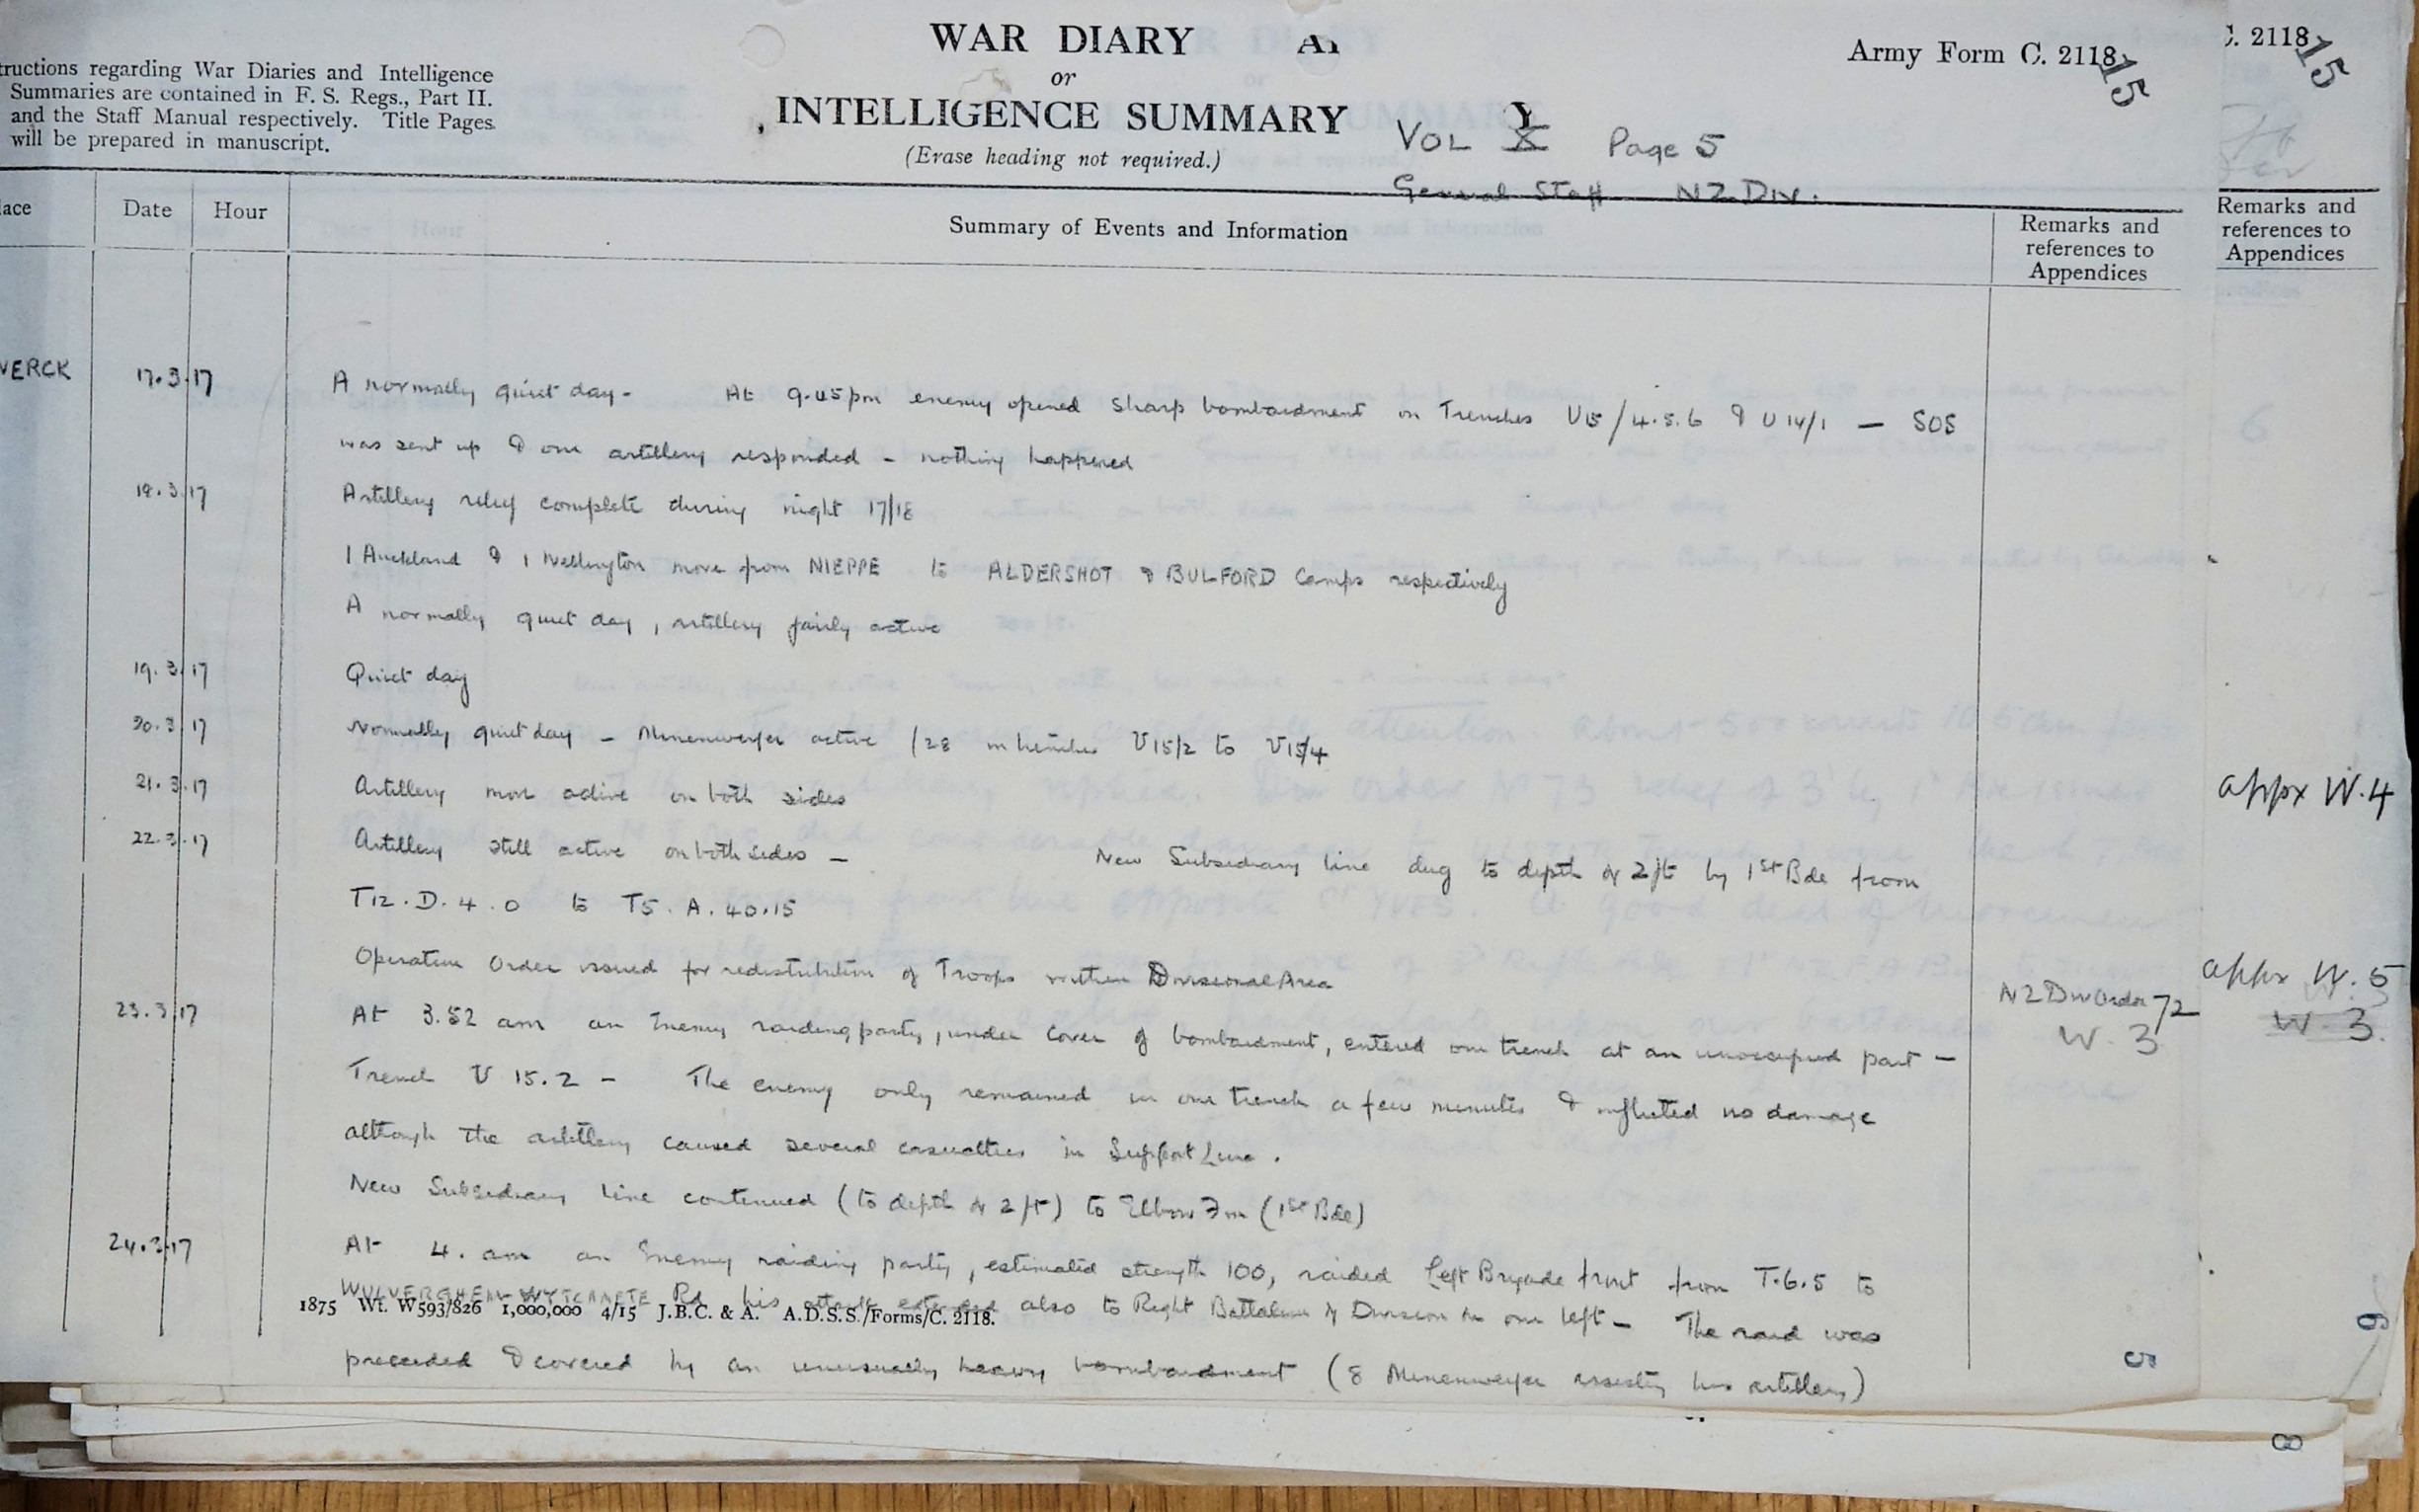 WAR DIARY
or
INTELLIGENCE SUMMARY
(Erase heading not required.)
Army Form C. 2118.
15
C. 2118
15
tructions regarding War Diaries and Intelligence
Summaries are contained in F. S. Regs., Part II.
and the Staff Manual respectively. Title Pages
will be prepared in manuscript.
VOL X Page 5
General Staff NZ DIV.
lace Date Hour
Summary of Events and Information
Remarks and
references to
Appendices
Remarks and
references to
Appendices
VERCK 17.3.17 A normally quiet day - At 9.45pm enemy opened sharp bombardment on Trenches U15/4.5.6 & U14/1 — SOS
was sent up & our artillery responded - nothing happened
18.3.17 Artillery relief complete during night 17/18
1 Auckland & 1 Wellington move from NIEPPE to ALDERSHOT & BULFORD Camps respectively
A normally quiet day, artillery fairly active
19.3.17 Quiet day
20.3.17 Normally quiet day - Minenwerfer active (28 in trenches U15/2 to U15/4
21.3.17 Artillery more active on both sides
appx W.4
22.3.17 Artillery still active on both sides — New Subsidiary line dug to depth of 2ft by 1st Bde from
T12.D.4.0 to T5.A.40.15
Operation Order issued for redistribution of Troops within Divisional Area
NZ Div Order 72
W.3
appx W.5
W.3
23.3.17 At 3.52 am an Enemy raiding party, under cover of bombardment, entered our trench at an unoccupied part —
Trench U 15.2 - The enemy only remained in our trench a few minutes & inflicted no damage
although the artillery caused several casualties in Support Line.
New Subsidiary line continued (to depth of 2ft) to Elbow Fm (1st Bde)
24.3.17 At 4. am an Enemy raiding party, estimated strength 100, raided Left Brigade front from T.6.5 to
WULVERGHEM-WYTCHAETE Rd his attack extended also to Right Battalion of Division on our left - The raid was
1875 Wt. W593/826 1,000,000 4/15 J.B.C. & A. A.D.S.S./Forms/C. 2118.
preceded & covered by an unusually heavy bombardment (8 Minenwerfer assisting his artillery)
5
6
8